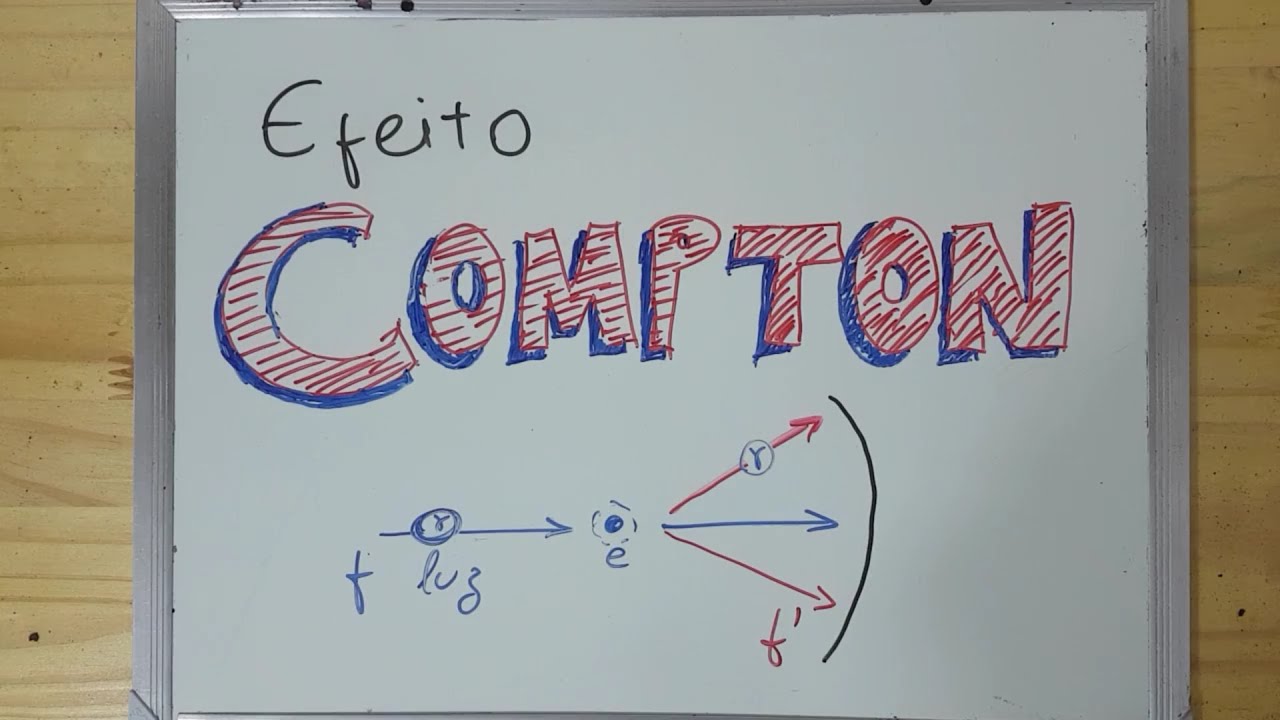 Efeito
COMPTON
γ
γ
e
f luz
f'